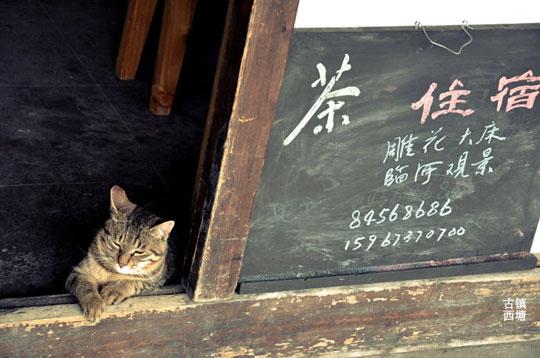 茶 住宿
雕花大床
臨河观景
84568686
15967370700
古镇
西塘